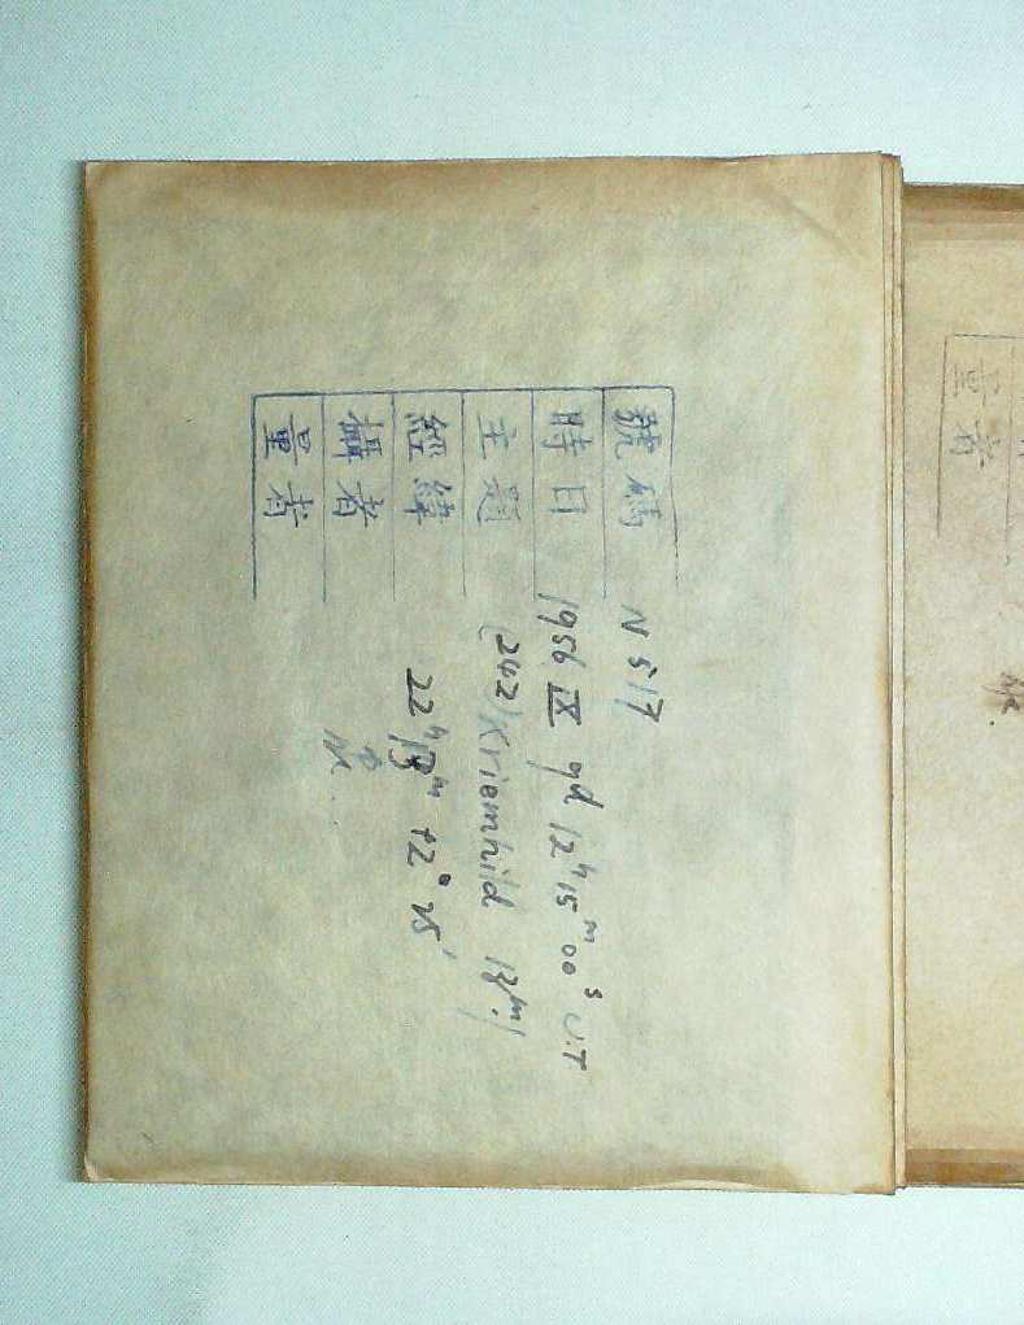 號碼 N 517
時日 1956 IX 9d 12h 15m 00s U.T
主題 (242) Kriemhild 13m)
經緯 22h 13m +2° 25'
攝者
量者
量者